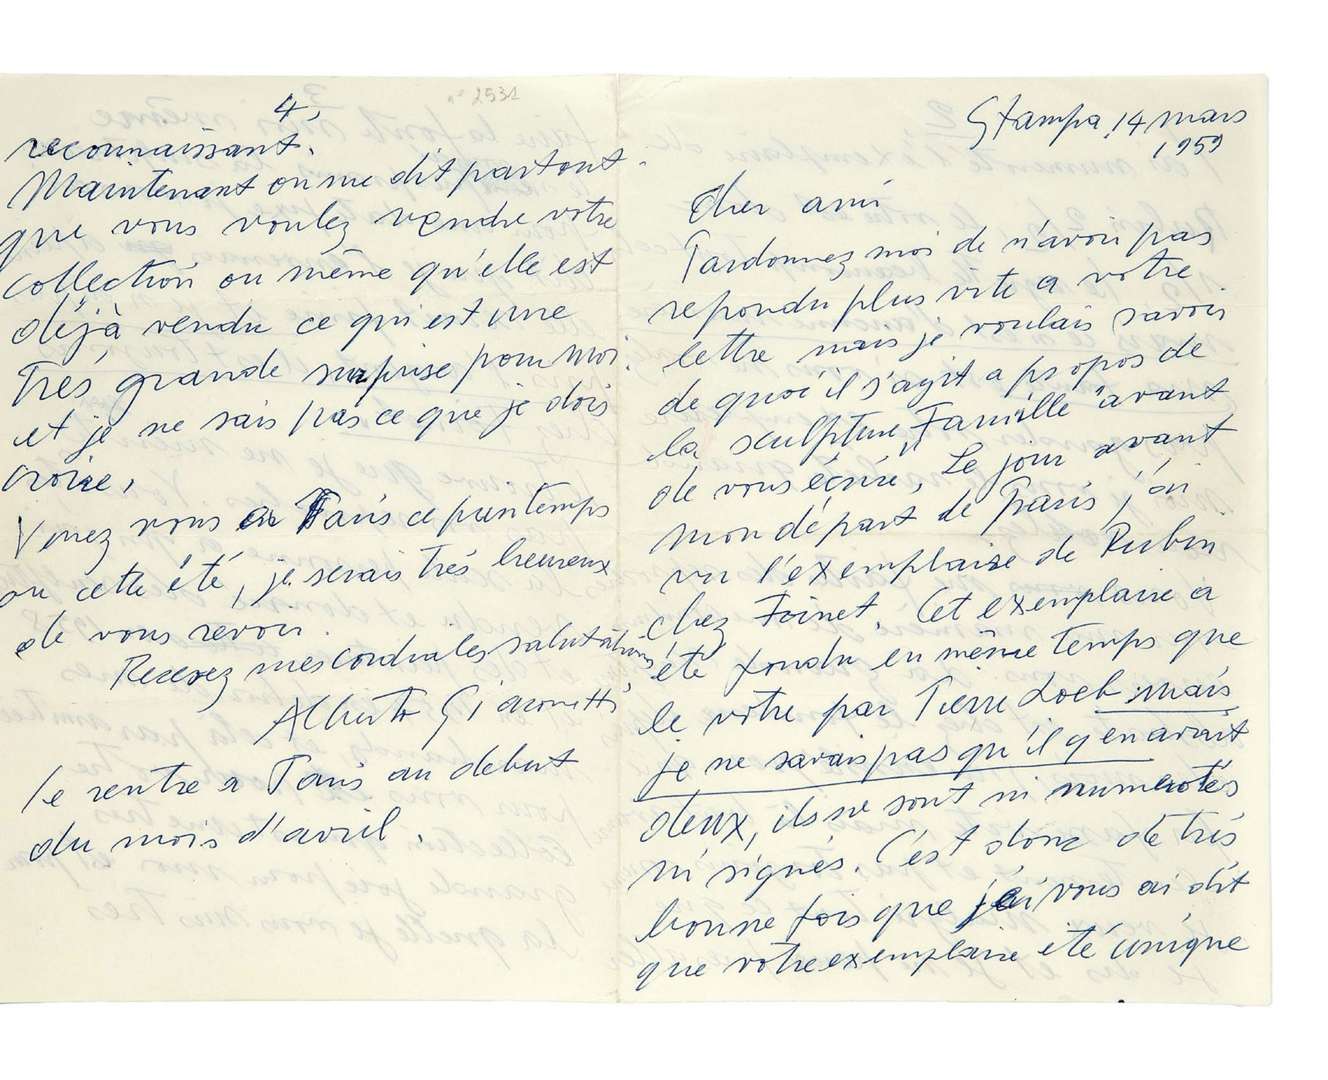 Stampa, 14 mars
1959
Cher ami
Pardonnez moi de n'avoir pas
repondu plus vite a votre
lettre mais je voulais savoir
de quoi il s'agit a propos de
la sculpture "Famille" avant
de vous écrire. Le jour avant
mon départ de Paris j'ai
vu l'exemplaire de Rubin
chez Foinet. Cet exemplaire a
été fondu en même temps que
le votre par Pierre Loeb mais
je ne savais pas qu'il y en avait
deux, ils ne sont ni numerotés
ni signés. C'est donc de très
bonne fois que j'ai vous ai dit
que votre exemplaire été unique
4,
n° 2531
reconnaissant.
Maintenant on me dit partout
que vous voulez vendre votre
collection ou même qu'elle est
déjà vendu ce qui est une
très grande surprise pour moi
et je ne sais pas ce que je dois
croire,
Venez vous a Paris ce printemps
ou cette été, je serais très heureux
de vous revoir.
Recevez mes cordiales salutations
Alberto Giacometti
Je rentre a Paris au debut
du mois d'avril.